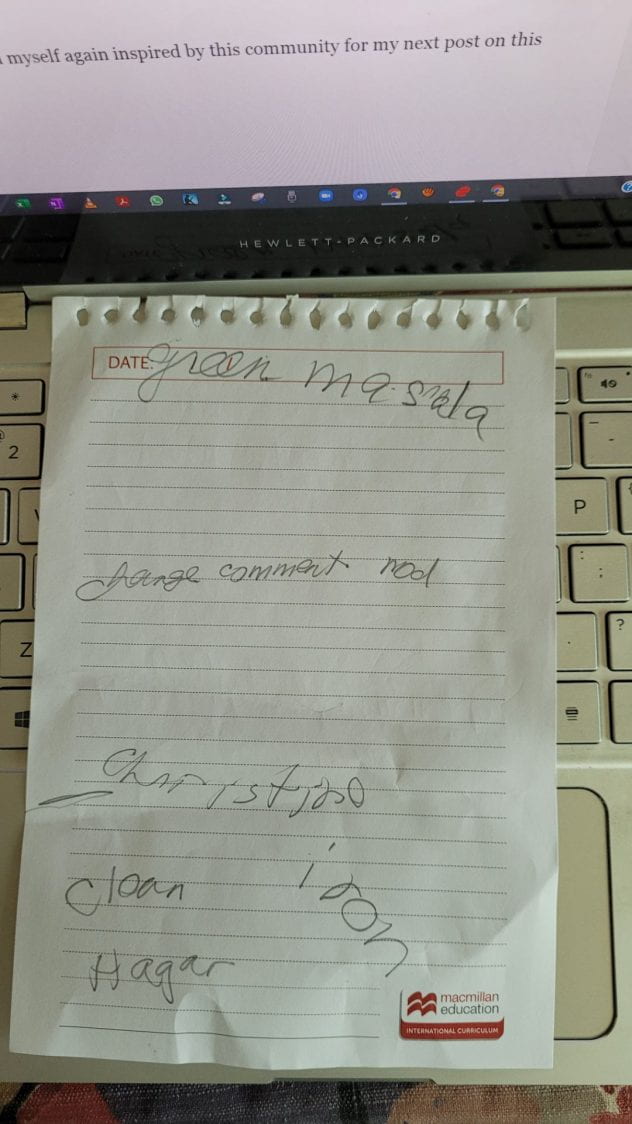 myself again inspired by this community for my next post on this
HEWLETT-PACKARD
DATE: green masala
change comment mod
clean
Hagar
macmillan
education
INTERNATIONAL CURRICULUM
2
P
Z